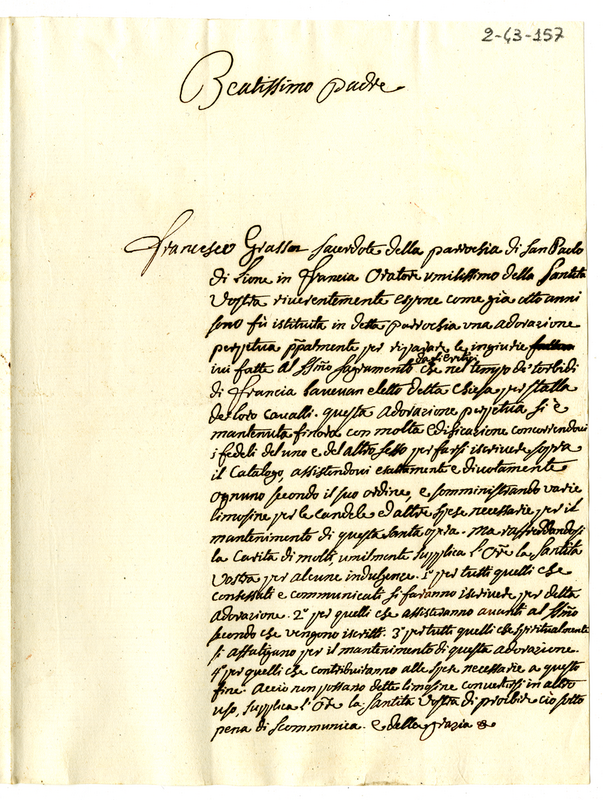 2-43-157
Beatissimo padre
Francesco Grassa sacerdote della parrochia di San Paolo
di Lione in Francia Oratore umilissimo della Santità
Vostra riverentemente espone come già otto anni
sono fù istituita in detta parrochia una adorazione
perpetua ppalmente per riparare le ingiurie
ivi fatte al SSmo Sagramento dagli eretici che nel tempo de' torbidi
di Francia havevan eletto detta chiesa per stalla
de loro cavalli. questa adorazione perpetua si è
mantenuta finora con molta edificazione concorrendovi
i fedeli del uno e del altro sesso per farsi iscrivere sopra
il Catalogo, assistendovi esattamente e divotamente
ognuno secondo il suo ordine, e somministrando varie
limosine per le candele ed altre spese necessarie per il
mantenimento di questa santa opra. Ma raffreddandosi
la Carità di molti, umilmente supplica l'Ore la Santità
Vostra per alcune indulgenze. 1º per tutti quelli che
confessati e communicati si faranno iscrivere per detta
adorazione. 2º per quelli che assisteranno avanti al SSmo
secondo che vengono iscritti. 3º per tutti quelli che spiritualmente
si affatigano per il mantenimento di questa adorazione.
4º per quelli che contribuiranno alle spese necessarie a questo
fine. Acciò non possano dette limosine convertirsi in altro
uso, supplica l'Ore la Santità Vostra di proibire ciò sotto
pena di scommunica. e della grazia &